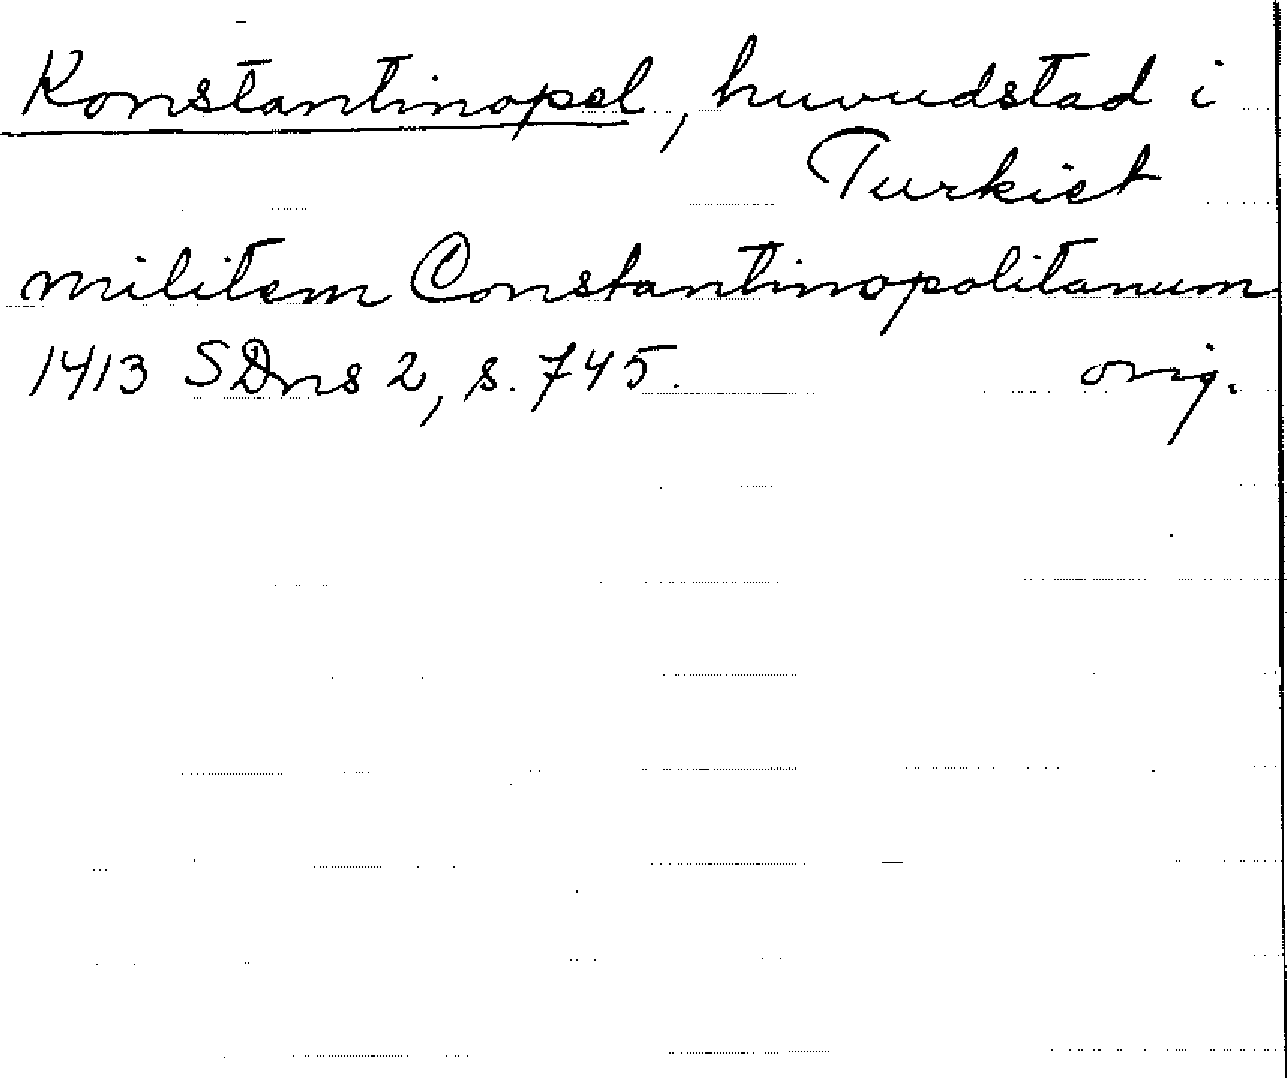 Konstantinopel, huvudstad i
Turkiet
militem Constantinopolitanum
1413 SDns 2, s. 745. orig.